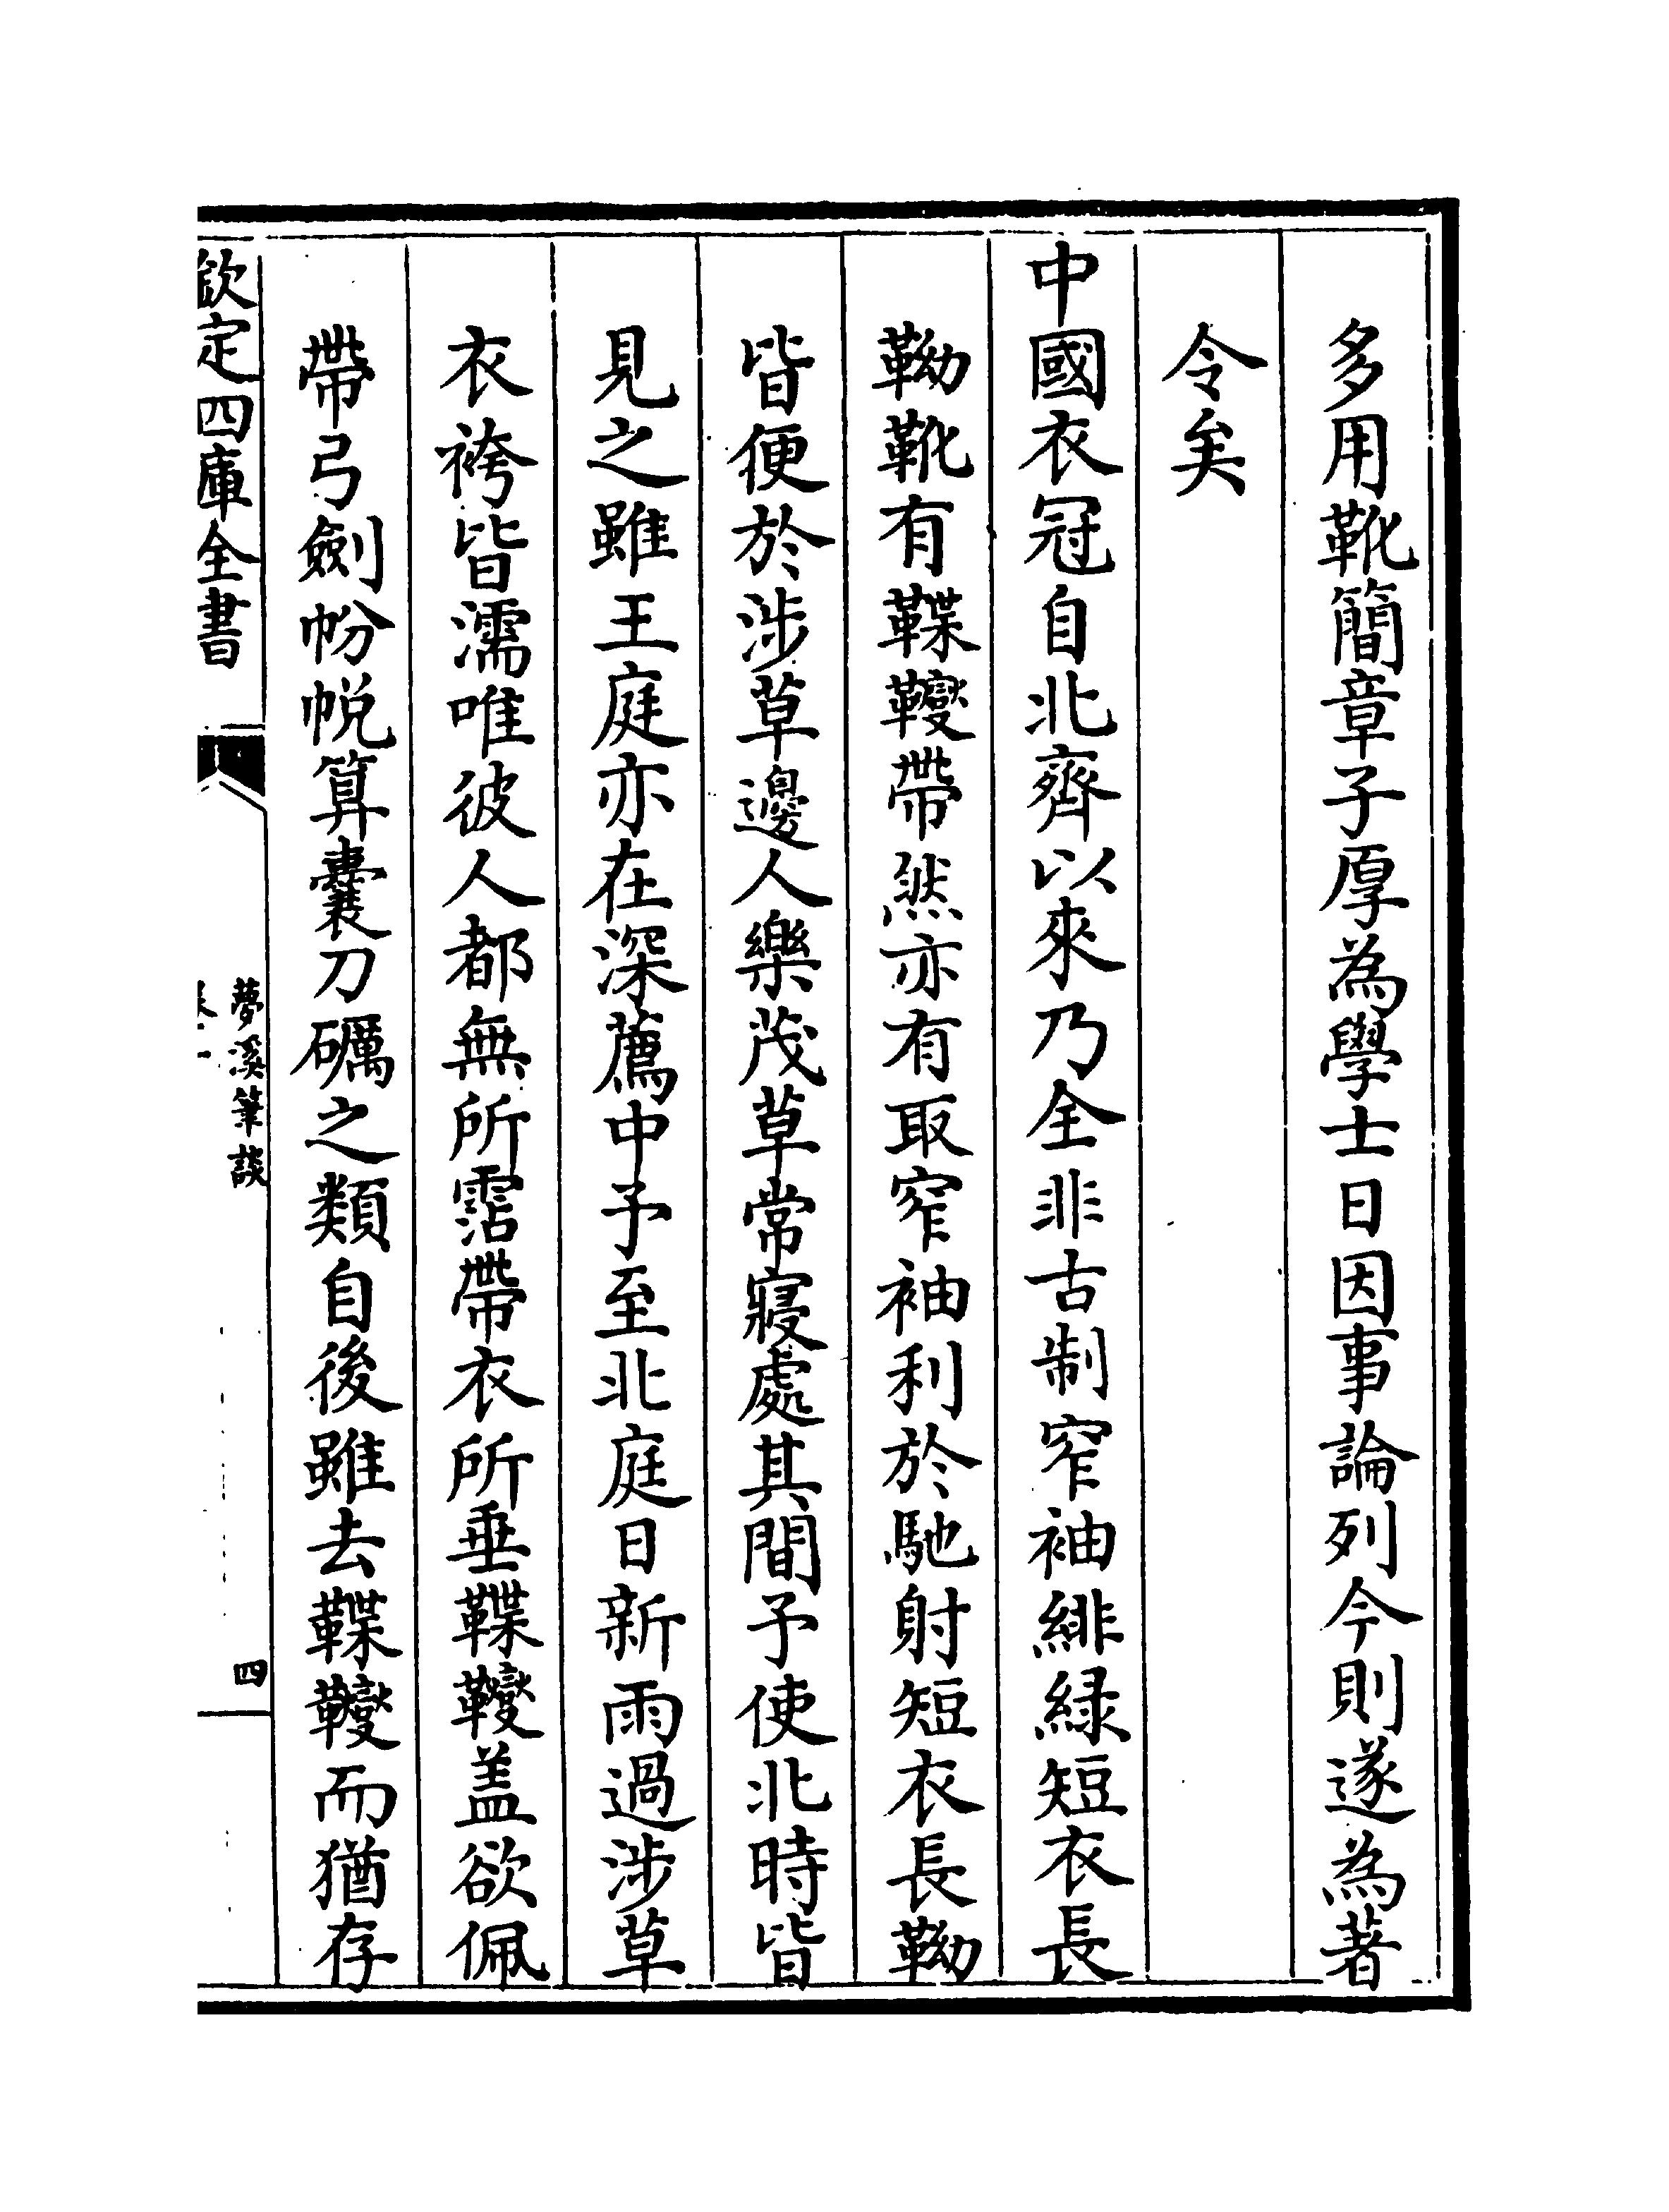 多用靴簡章子厚為學士日因事論列今則遂為著
令矣
中國衣冠自北齊以來乃全非古制窄袖緋緑短衣長
靿靴有鞢䪍帶然亦有取窄袖利於馳射短衣長靿
皆便於涉草邊人樂茂草常寢處其間予使北時皆
見之雖王庭亦在深薦中予至北庭日新雨過涉草
衣袴皆濡唯彼人都無所霑帶衣所垂鞢䪍盖欲佩
帶弓劍帉帨算囊刀礪之類自後雖去鞢䪍而猶存
欽定四庫全書
夢溪筆談
四